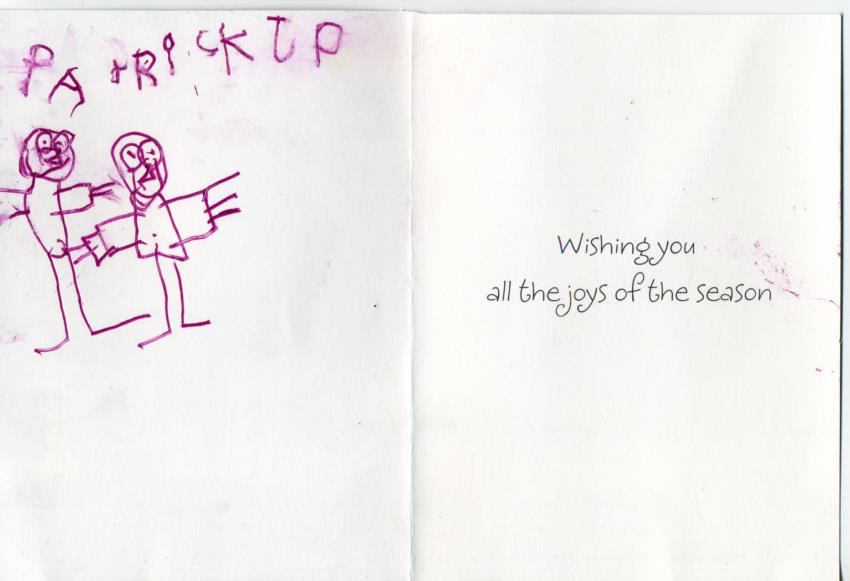 PATRICK J P
Wishing you
all the joys of the season